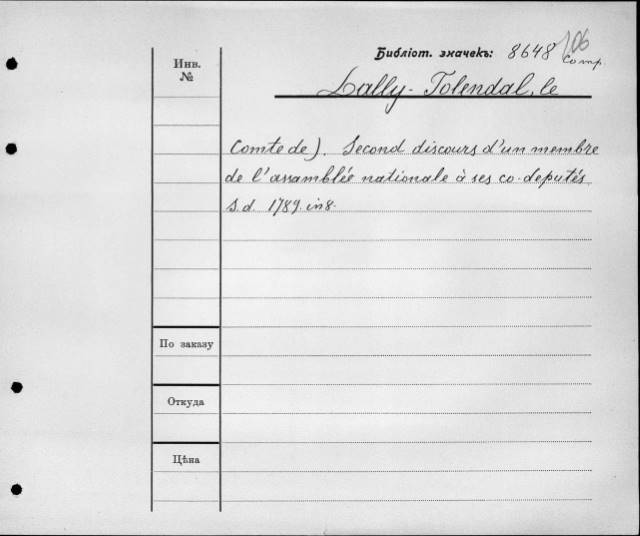 Библіот. значекъ: 8648 106
Comp.
Инв.
№
Lally-Tolendal, le
Comte de). Second discours d'un membre
de l'assamblée nationale à ses co-deputés
S.d. 1789. in 8.
По заказу
Откуда
Цѣна